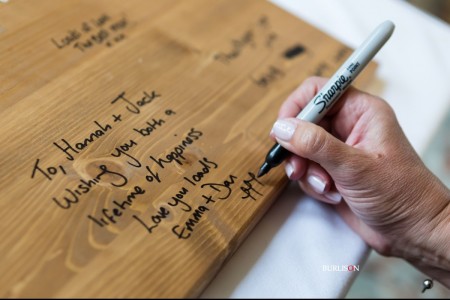 Loads of love
To, Hannah + Jack
Wishing you both a
lifetime of happiness
Love you loads
Emma + Dan
Sharpie
BURLISON